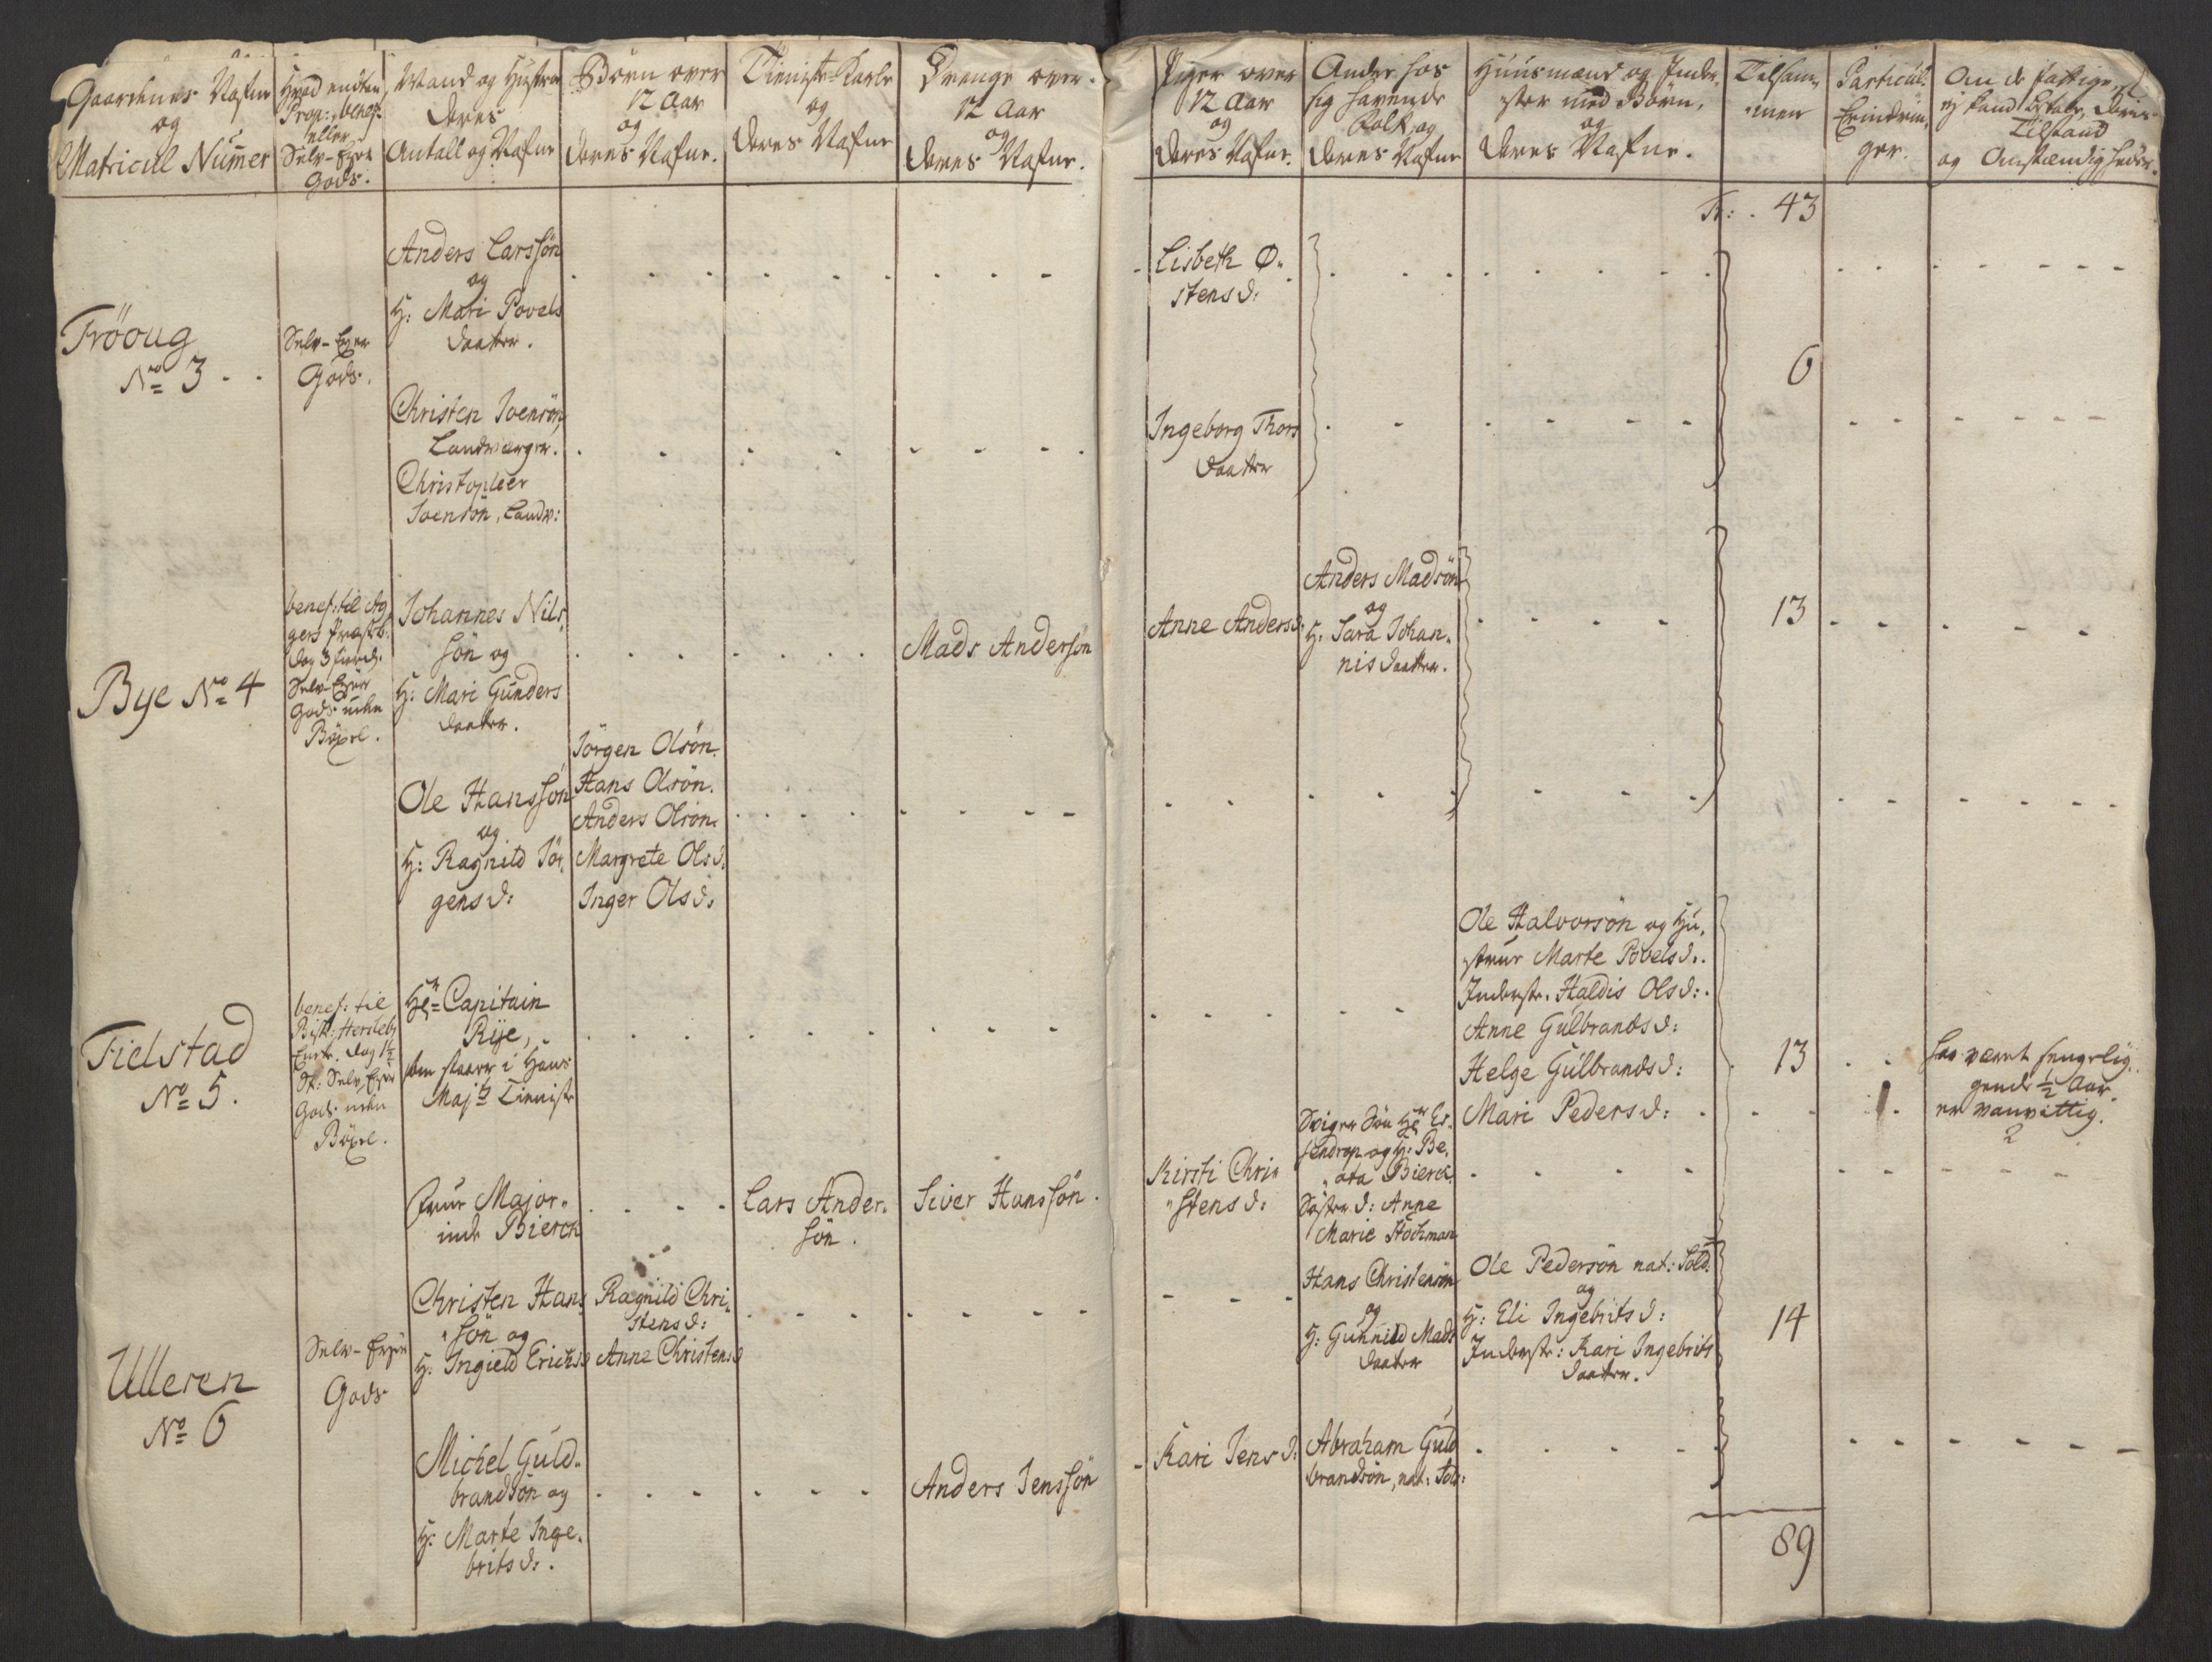 Gaardenes Nafne
og
Matricul Numer
Hvad endten
Prop:, benef:
eller
Selv-Eyer
Gods.
Mand og Hustru
Deres
Antall og Nafne
Börn over
12 Aar
og
deres Nafne.
Tieniste-Karle
og
deres Nafne
Drenge over
12 Aar
og
deres Nafne.
Piger over
12 Aar
og
deres Nafne.
Andre hos
sig havende
Folk, og
deres Nafne
Huusmænd og Inder-
ster med Börn,
og
deres Nafne.
Tilsam-
men
Particul:
Erindrin-
ger.
Om de fattige, ej
kand betale, deris
Tilstand
og Omstændigheder.
Tr: . 43
Tröoug
No 3 . .
Selv-Eyer
Gods.
Anders Larssön
og
H: Mari Povels
daatter.
Lisbeth Ø-
stensd:
6
Christen Joensön,
Landværger.
Christopher
Joensön, Landv:
Ingeborg Thors
daatter
Bye No 4
benef: til Ag
gers Præsteb:
Dog 3 fierd.
Selv-Eyer
Gods uden
Böxel.
Johannes Nils-
sön og
H: Mari Gunders
daatter.
Mads Andersön
Anne Andersd:
Anders Madsön
og
H: Sara Johan-
nisdaatter.
13
Ole Hanssön
og
H: Ragnild Jör-
gensd:
Jörgen Olsön.
Hans Olsön.
Anders Olsön.
Margrete Olsd.
Inger Olsd.
Fielstad
No 5.
benef: til
Hersleb
Dog 1½
Selv Eyer
Gods uden
Böxel.
Hr Capitain
Rye,
som staaer i Hans
Majts Tieniste
Ole Halvorsön og Hu-
strue Marte Povelsd:.
Inderste. Haldis Olsd:.
Anne Gulbrandsd:
Helge Gulbrandsd:
Mari Pedersd: .
13
1.
har været sengelig-
gende ½ Aar.
er vanvittig.
2
Frue Major-
inde Bierck
Lars Ander-
sön.
Siver Hanssön.
Kirsti Chri-
stensd:
Sviger Sön Hr Es-
sendrop og H: Be-
ata Bierck
Söster d: Anne
Marie Stochman
Ulleren
No 6
Selv-Eyer
Gods
Christen Hans
sön og
H: Ingield Erichsd
Ragnild Chri-
stensd:
Anne Christensd
Hans Christensön
og
H: Gunnild Mads
daatter
Ole Pedersön nat: Sold.
og
H: Eli Ingebritsd:
Inderste: Kari Ingebrits
daatter.
14
Michel Guld-
brandsön og
H: Marte Inge-
britsd:.
Anders Jenssön
Kari Jensd:
Abraham Guld
brandsön, nat: Sold:
89